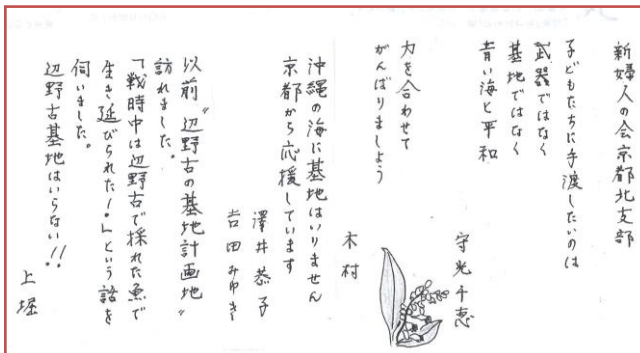 新婦人の会京都北支部
子どもたちに手渡したいのは
武器ではなく
基地ではなく
青い海と平和
守光千恵
力を合わせて
がんばりましょう
木村
沖縄の海に基地はいりません
京都から応援しています
澤井恭子
吉田みゆき
以前〝辺野古の基地計画地〟
訪れました。
「戦時中は辺野古で採れた魚で
生き延びられた!」という話を
伺いました。
辺野古基地はいらない!!
上堀